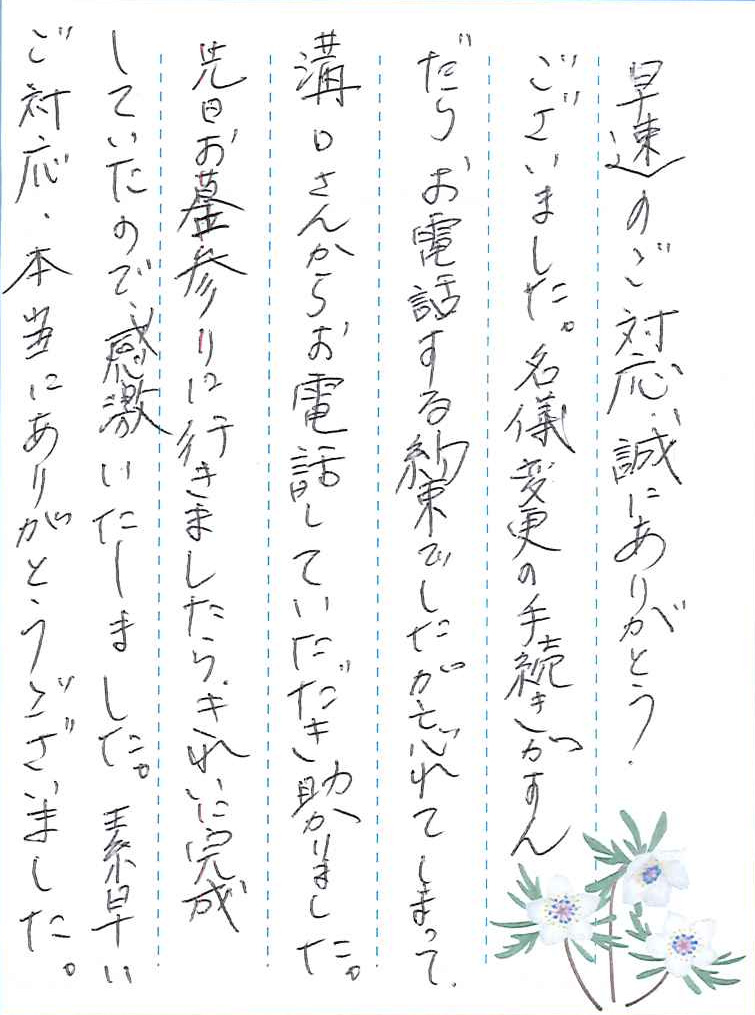 早速のご対応、誠にありがとう
ございました。名儀変更の手続きがすん
だらお電話する約束でしたが忘れてしまって、
溝口さんからお電話していただき助かりました。
先日お墓参りに行きましたら、キれいに完成
していたので、感激いたしました。素早い
ご対応、本当にありがとうございました。